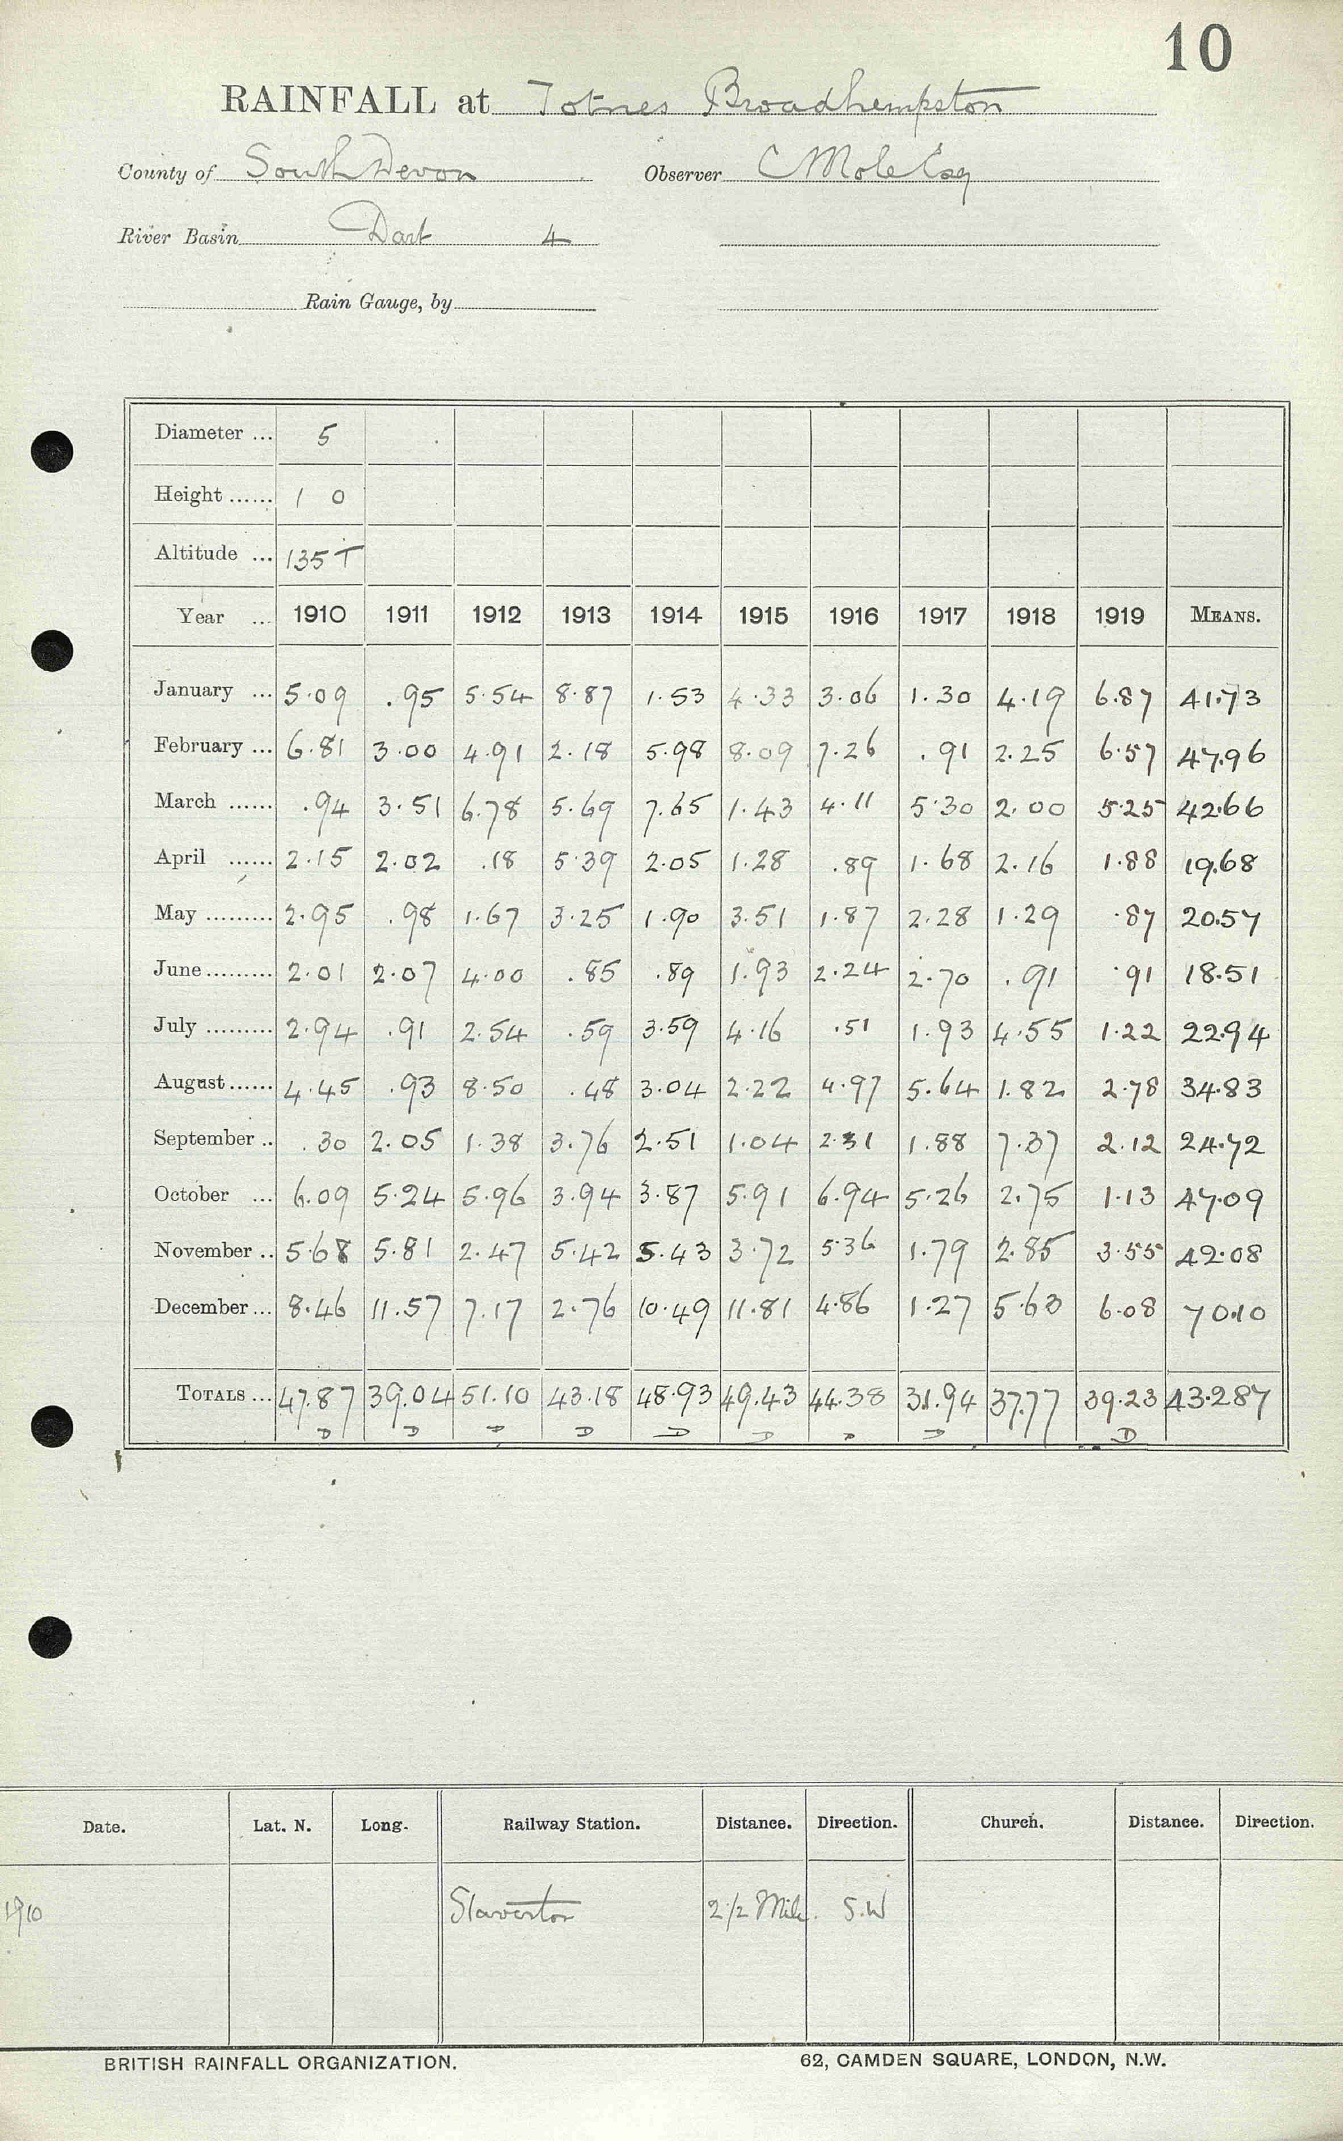 10
RAINFALL at Totnes Broadhempston
County of South Devon Observer C Mole Esq
River Basin Dart 4
Rain Gauge, by
Diameter ... 5
Height ...... 1 0
Altitude ... 135 T
Year ... 1910 1911 1912 1913 1914 1915 1916 1917 1918 1919 MEANS.
January ... 5.09 .95 5.54 8.87 1.53 4.33 3.06 1.30 4.19 6.87 41.73
February ... 6.81 3.00 4.91 2.18 5.98 8.09 7.26 .91 2.25 6.57 47.96
March ...... .94 3.51 6.78 5.69 7.65 1.43 4.11 5.30 2.00 5.25 42.66
April ...... 2.15 2.02 .18 5.39 2.05 1.28 .89 1.68 2.16 1.88 19.68
May ......... 2.95 .98 1.67 3.25 1.90 3.51 1.87 2.28 1.29 .87 20.57
June ......... 2.01 2.07 4.00 .85 .89 1.93 2.24 2.70 .91 .91 18.51
July ......... 2.94 .91 2.54 .59 3.59 4.16 .51 1.93 4.55 1.22 22.94
August ...... 4.45 .93 8.50 .48 3.04 2.22 4.97 5.64 1.82 2.78 34.83
September .. .30 2.05 1.38 3.76 2.51 1.04 2.31 1.88 7.37 2.12 24.72
October ... 6.09 5.24 5.96 3.94 3.87 5.91 6.94 5.26 2.75 1.13 47.09
November .. 5.68 5.81 2.47 5.42 5.43 3.72 5.36 1.79 2.85 3.55 42.08
December ... 8.46 11.57 7.17 2.76 10.49 11.81 4.86 1.27 5.63 6.08 70.10
TOTALS ... 47.87 39.04 51.10 43.18 48.93 49.43 44.38 31.94 37.77 39.23 43.287
D D D D D D D D D
Date. Lat. N. Long. Railway Station. Distance. Direction. Church. Distance. Direction.
1910 Staverton 2 1/2 Mile. S.W
BRITISH RAINFALL ORGANIZATION. 62, CAMDEN SQUARE, LONDON, N.W.